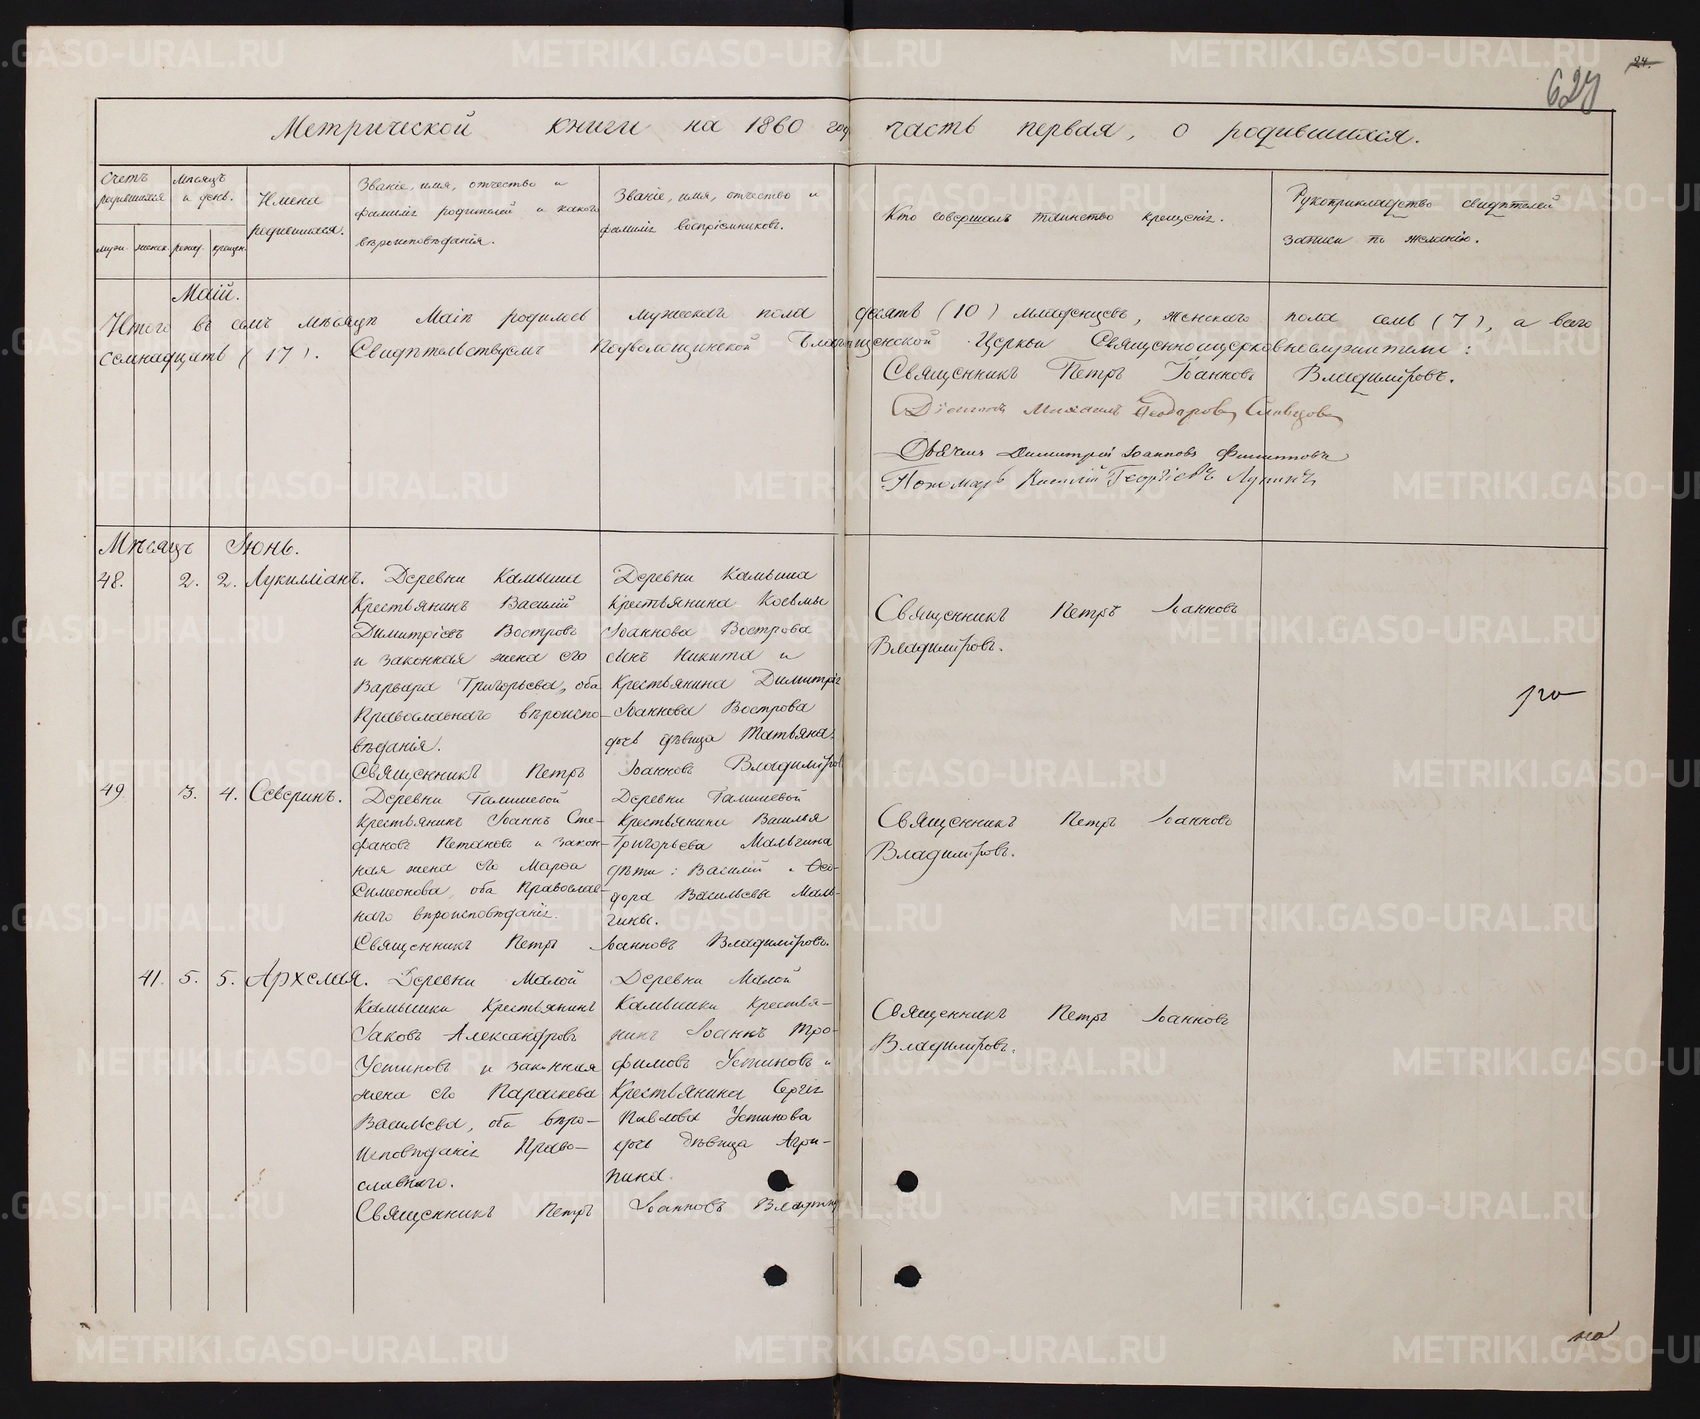 24.
627
Метрической книги на 1860 год часть первая, о родившихся.
Счетъ родившихся
Мѣсяцъ и день.
Имена родившихся.
Званіе, имя, отчество и
фамилія родителей и какого
вѣроисповѣданія.
Званіе, имя, отчество и
фамилія воспріемниковъ.
Кто совершалъ таинство крещенія.
Рукоприкладство свидѣтелей
записи по желанію.
муж. женск. рожд. крещен.
Маій.
Итого въ семъ мѣсяцѣ Маіѣ родилось мужескаго пола десять (10) младенцевъ, женскаго пола семь (7), а всего
семнадцать (17). Свидѣтельствуемъ Подволошинской Благовѣщенской Церкви Священноцерковнослужители:
Священникъ Петръ Іоанновъ Владиміровъ.
Діаконъ Михаилъ Ѳеодоровъ Словцовъ
Дьячекъ Димитрій Іоанновъ Филипповъ
Пономарь Василій Георгіевъ Лупинъ
Мѣсяцъ Іюнь.
48. 2. 2. Лукилліанъ.
Деревни Камыши
Крестьянинъ Василій
Димитріевъ Востровъ
и законная жена его
Варвара Григорьева, оба
Православнаго вѣроиспо-
вѣданія.
Деревни Камыша
Крестьянина Косьмы
Іоаннова Вострова
сынъ Никита и
Крестьянина Димитрія
Іоаннова Вострова
дочь дѣвица Татьяна.
Священникъ Петръ Іоанновъ
Владиміровъ.
Священникъ Петръ Іоанновъ Владиміровъ
49 3. 4. Северинъ.
Деревни Галишевой
Крестьянинъ Іоаннъ Сте-
фановъ Петановъ и закон-
ная жена его Марѳа
Симеонова, оба Православ-
наго вѣроисповѣданія.
Деревни Галишевой
Крестьянина Василья
Григорьева Мальгина
дѣти: Василій и Ѳео-
дора Васильевы Маль-
гины.
Священникъ Петръ Іоанновъ
Владиміровъ.
Священникъ Петръ Іоанновъ Владиміровъ.
41. 5. 5. Архелая.
Деревни Малой
Камышки Крестьянинъ
Іаковъ Александровъ
Устиновъ и законная
жена его Параскева
Васильева, оба вѣро-
исповѣданія Право-
славнаго.
Деревни Малой
Камышки Крестья-
нинъ Іоаннъ Тро-
фимовъ Устиновъ и
Крестьянина Сергія
Павлова Устинова
дочь дѣвица Агри-
пина.
Священникъ Петръ Іоанновъ
Владиміровъ.
Священникъ Петръ Іоанновъ Владимір
METRIKI.GASO-URAL.RU